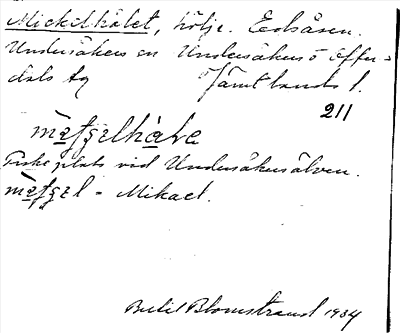 Mickelhålet, hölje. Edsåsen.
Undersåkers sn Undersåkers o Offer-
dals tg Jämtlands l.
211
Fiskeplats vid Undersåkersälven.
- Mikael.
Bertil Blomstrand 1934